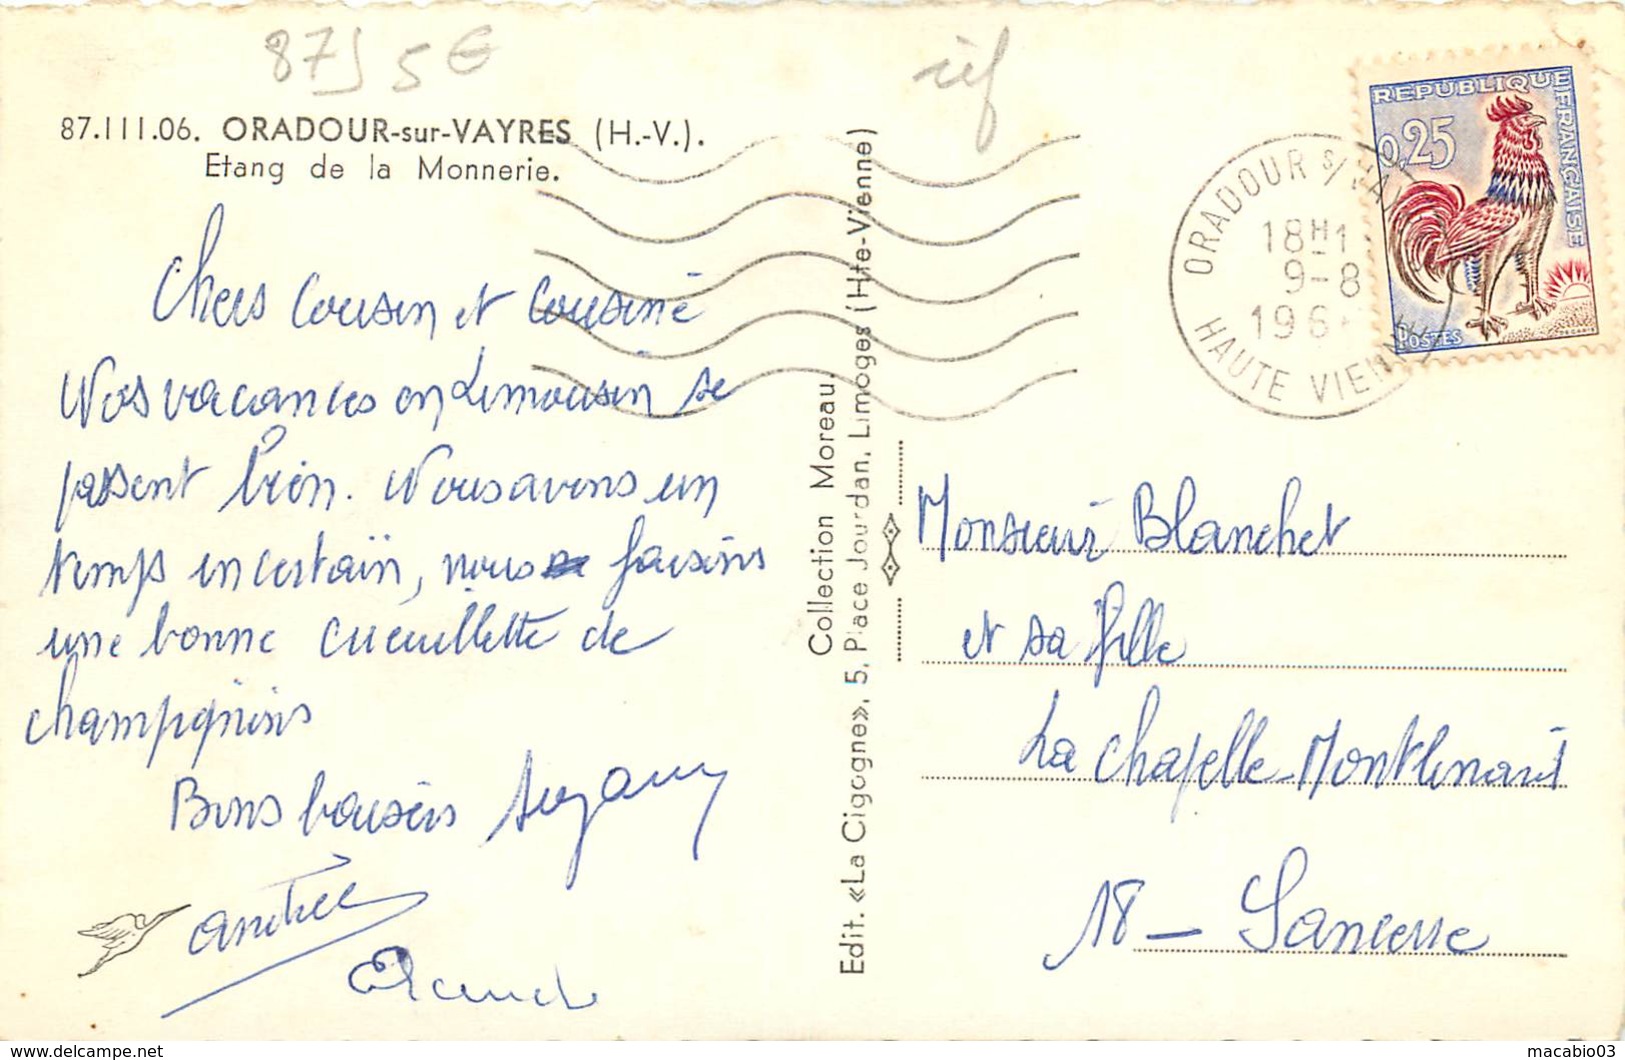 87 5€
réf
87.III.06. ORADOUR-sur-VAYRES (H.-V.).
Etang de la Monnerie.
Chers Cousin et Cousine
Nos vacances en Limousin se
passent bien. Nous avons un
temps incertain, nous faisons
une bonne cueuillette de
champignons
Bons baisers Suzanne
andrée
Claude
Collection Moreau
Edit. «La Cigogne», 5, Place Jourdan, Limoges (Hte-Vienne)
REPUBLIQUE FRANÇAISE
0,25
POSTES
ORADOUR S/ VA
18H1
9-8
196
HAUTE VIENNE
Monsieur Blanchet
et sa fille
La Chapelle-Montlinard
18 - Sancerre
delcampe.net
macabio03